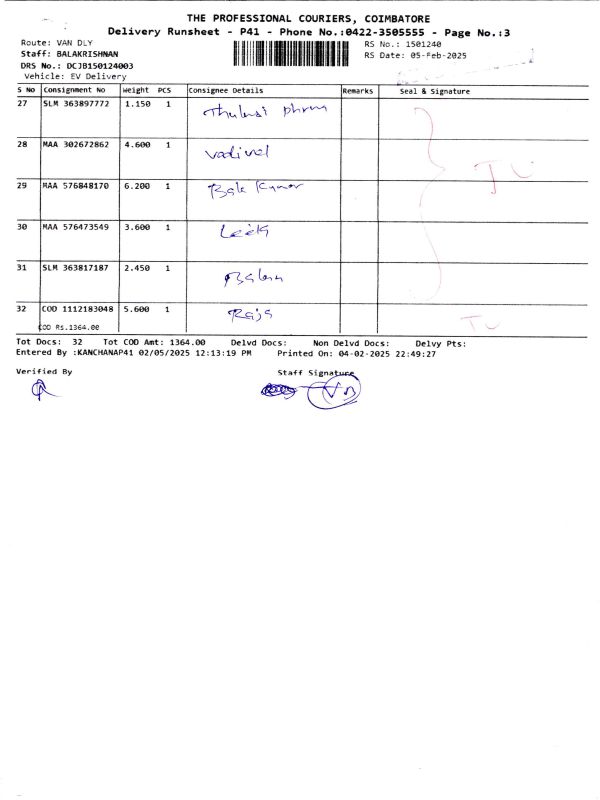 THE PROFESSIONAL COURIERS, COIMBATORE
Delivery Runsheet - P41 - Phone No.:0422-3505555 - Page No.:3
Route: VAN DLY RS No.: 1501240
Staff: BALAKRISHNAN RS Date: 05-Feb-2025
DRS No.: DCJB150124003
Vehicle: EV Delivery
S No Consignment No Weight PCS Consignee Details Remarks Seal & Signature
27 SLM 363897772 1.150 1
28 MAA 302672862 4.600 1 vadivel
29 MAA 576848170 6.200 1 Bala Kumar
30 MAA 576473549 3.600 1
31 SLM 363817187 2.450 1
32 COD 1112183048 5.600 1 Raja
COD RS.1364.00
Tot Docs: 32 Tot COD Amt: 1364.00 Delvd Docs: Non Delvd Docs: Delvy Pts:
Entered By :KANCHANAP41 02/05/2025 12:13:19 PM Printed On: 04-02-2025 22:49:27
Verified By Staff Signature